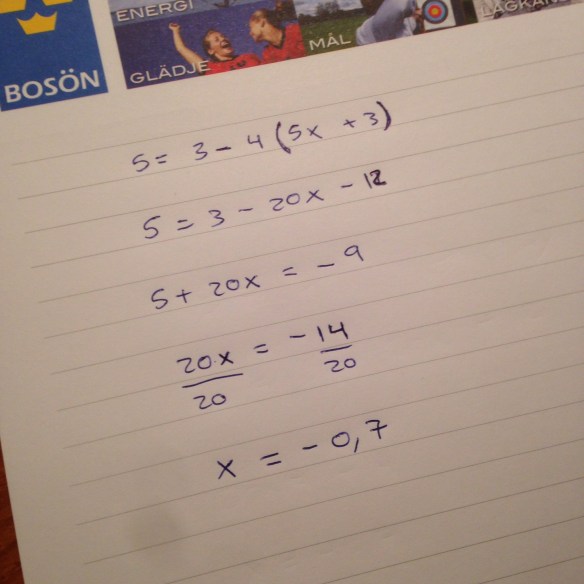 ENERGI
GLÄDJE
MÅL
BOSÖN
5 = 3 - 4 (5x + 3)
5 = 3 - 20x - 12
5 + 20x = - 9
20·x/20 = - 14/20
x = - 0,7